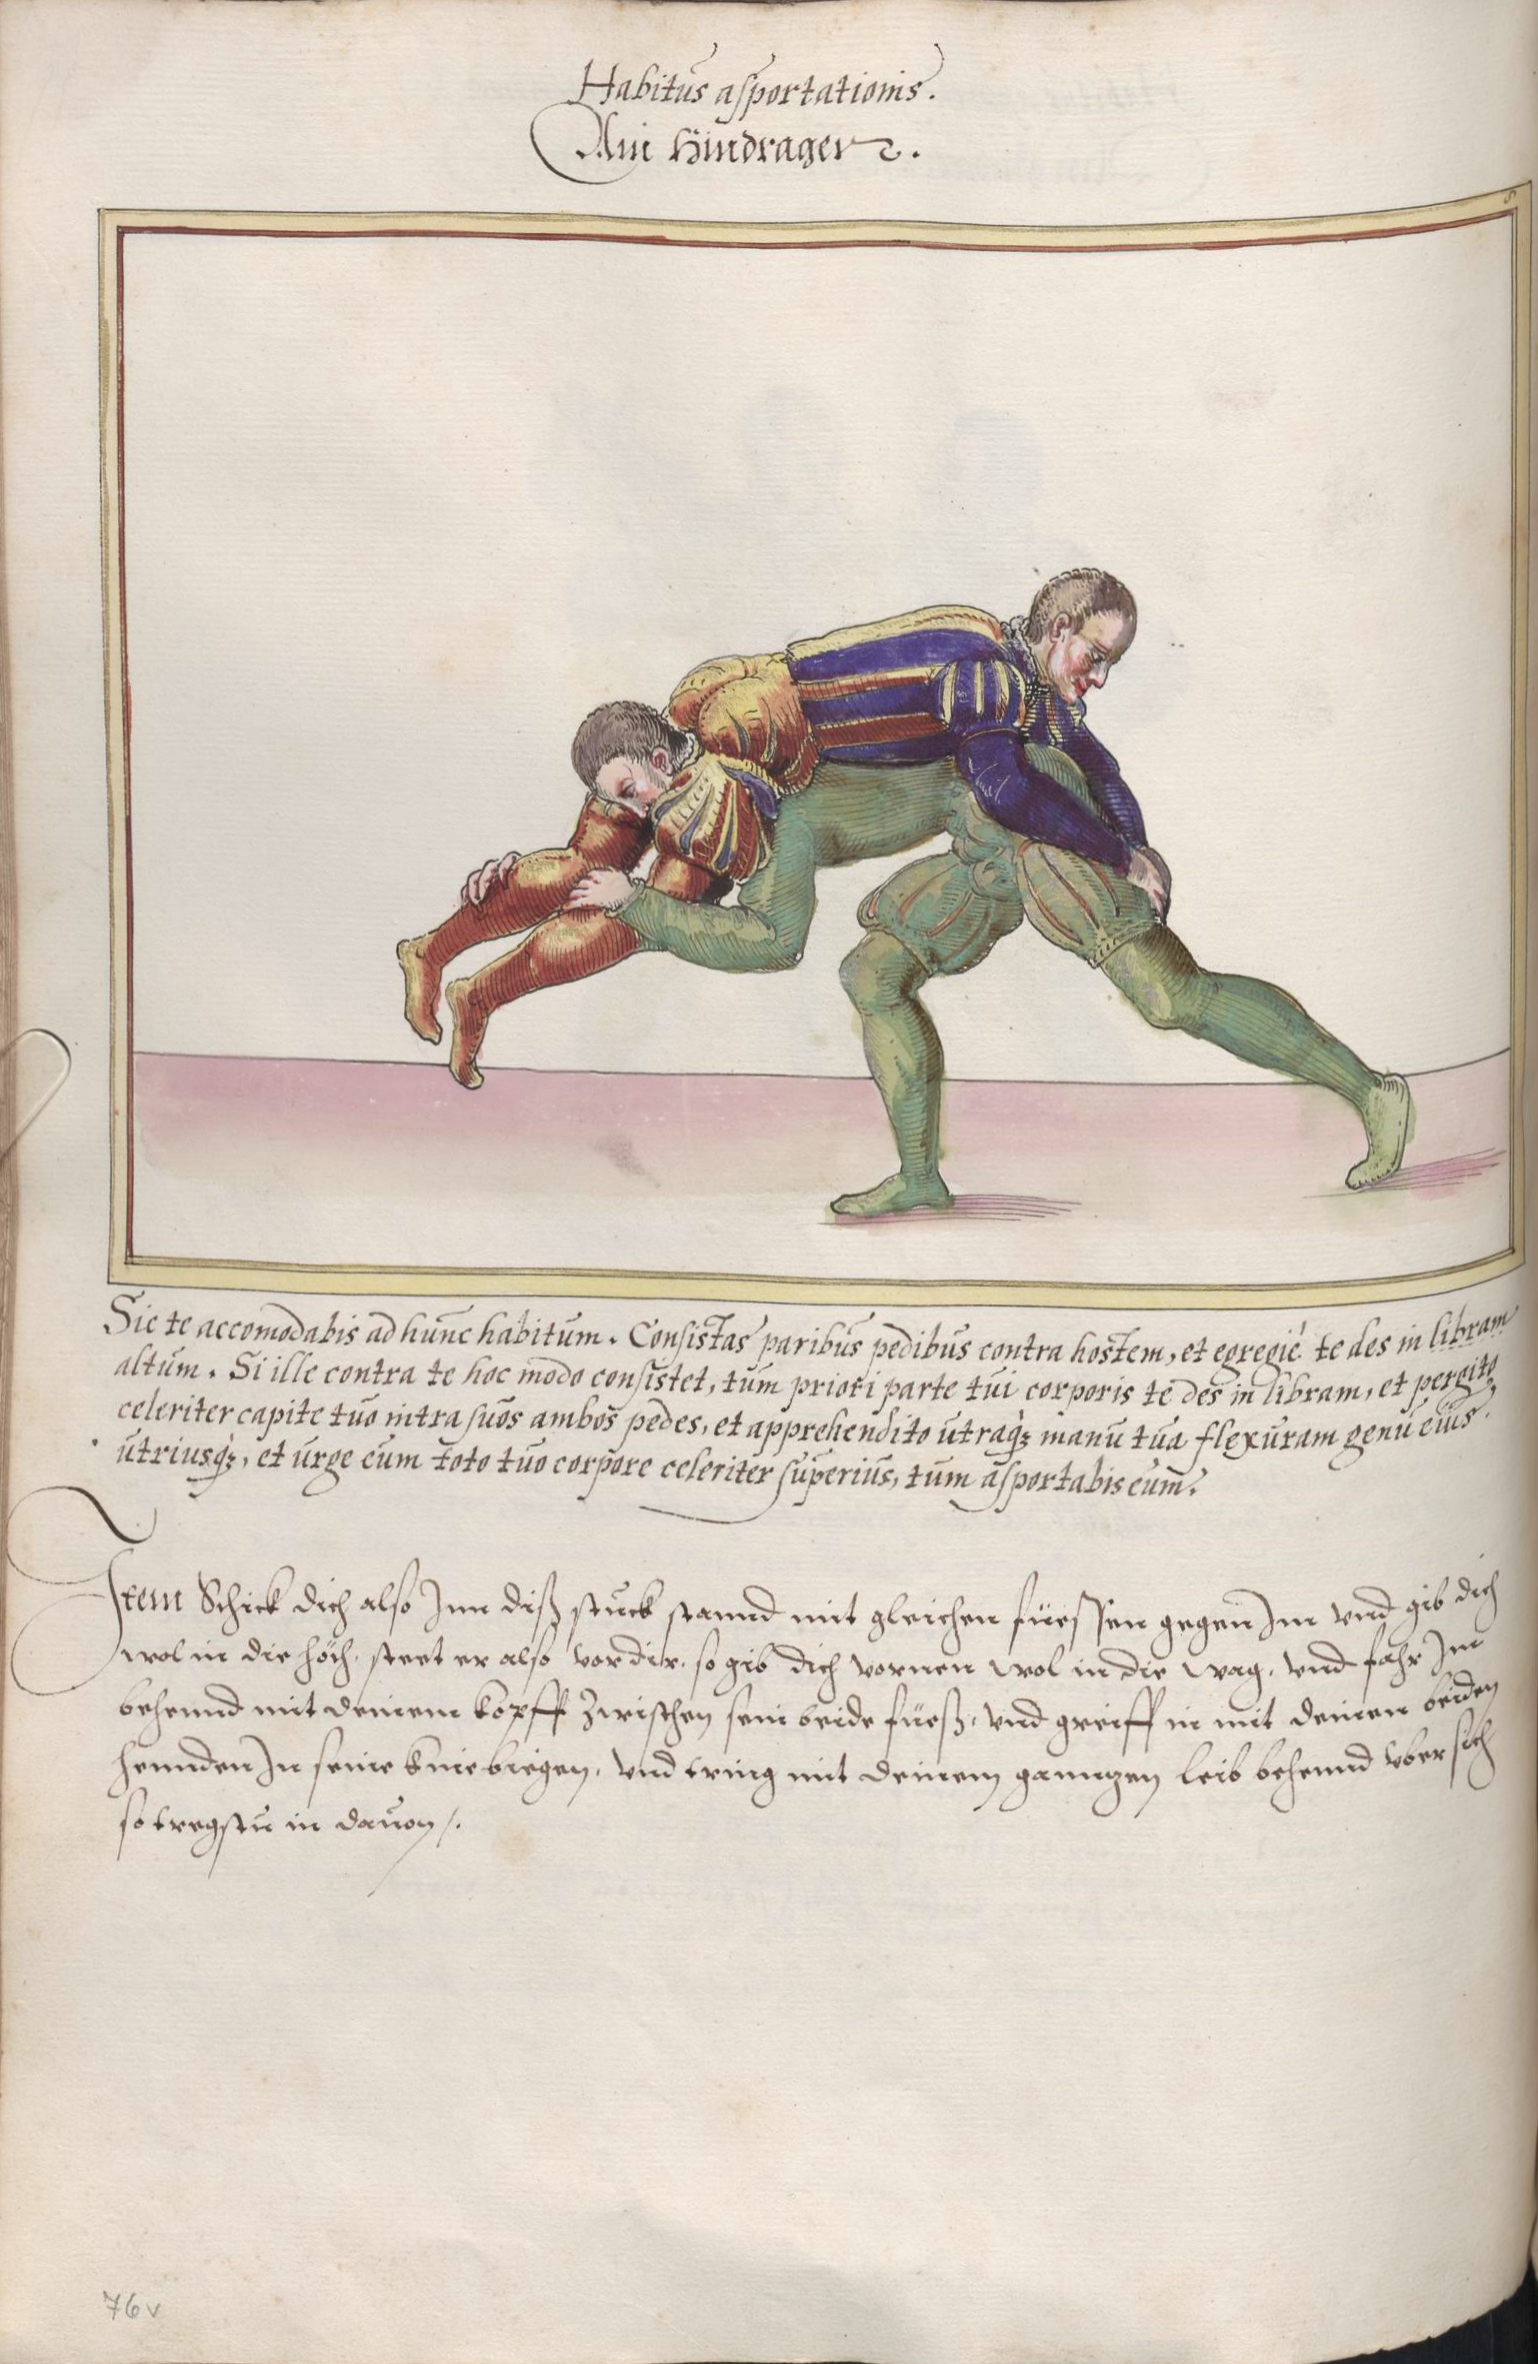 Habitus asportationis.
Ain Hindrager.
Sic te accomodabis ad hunc habitum. Consistas paribus pedibus contra hostem, et egregiè te des in libram
altum. Si ille contra te hoc modo consistet, tum priori parte tui corporis te des in libram, et pergito
celeriter capite tuo intra suos ambos pedes, et apprehendito utraq; manu tua flexuram genu eius
utriusq;, et urge eum toto tuo corpore celeriter superius, tum asportabis eum.
Item Schick dich also Inn diß stuck stannd mit gleichen füessen gegen Im vnd gib dich
wol in die höch. steet er also vor dir. so gib dich vornen wol in die wag. vnd fahr Im
behennd mit deinem kopff zwischen sein beide füeß. vnd greiff in mit deinen beiden
hennden In seine kniebiegen. vnd tring mit deinem ganntzen leib behennd vber sich
so tregstu in dauon /.
76v